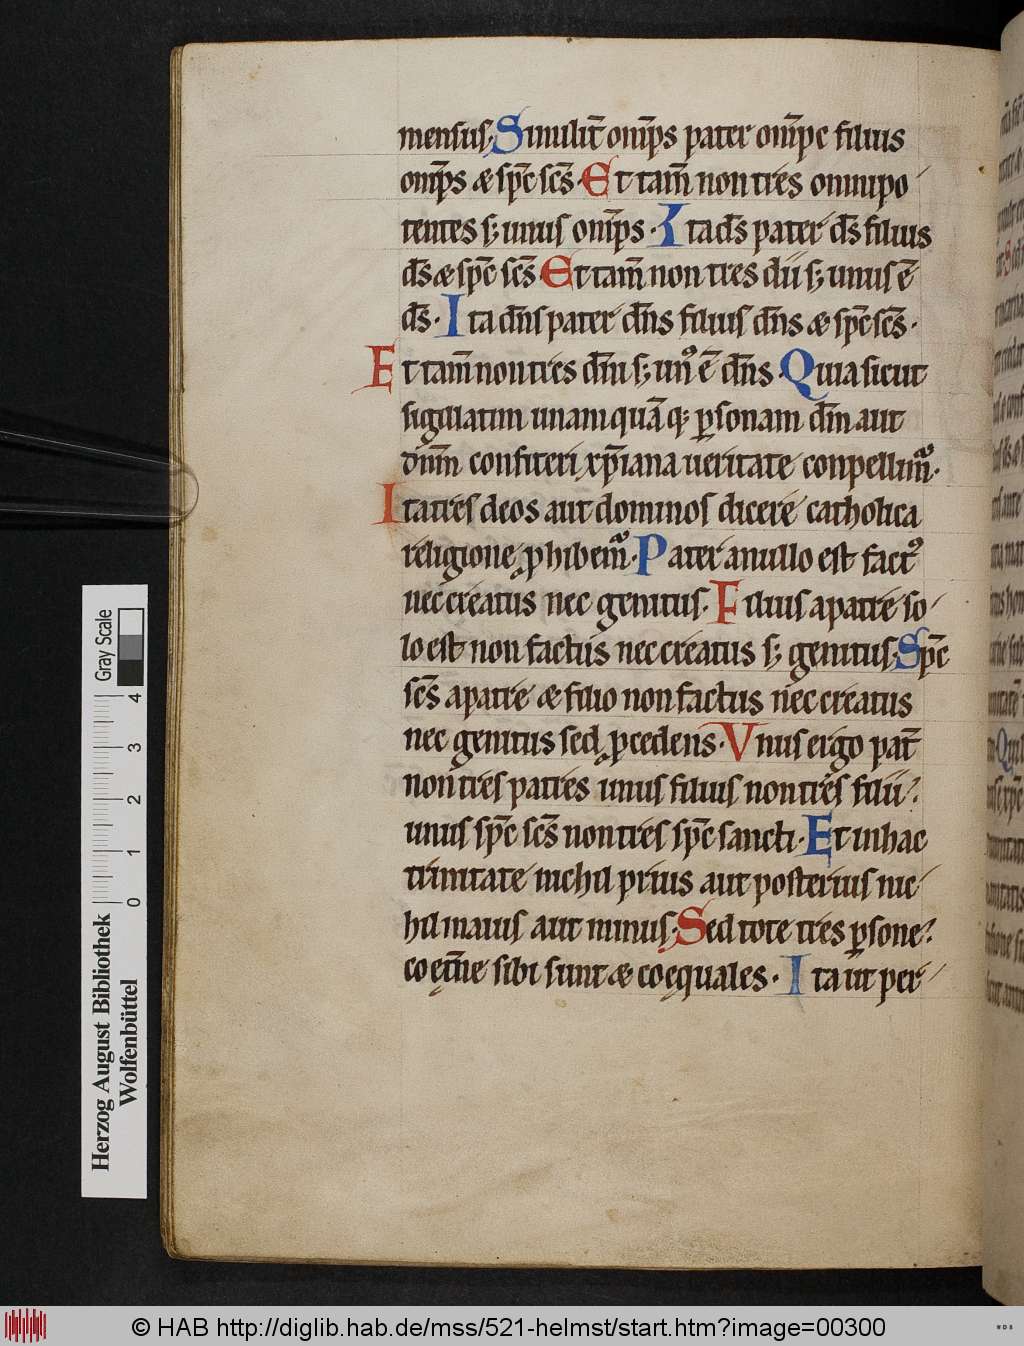 mensus; Similit̄ om̄ps pater om̄pc filius
om̄ps & sp̄c sc̄s. Et tam̄ non tres omnipo
tentes s; unus om̄ps. Ita ds̄ pater ds̄ filius
ds̄ & sp̄c sc̄s. Et tam̄ non tres dii s; unus ē
ds̄. Ita dn̄s pater dn̄s filius dn̄s & sp̄c sc̄s.
Et tam̄ non tres dn̄i s; unꝰ ē dn̄s. Quia sicut
sigulatim unam quā q; ꝑsonam dm̄ aut
dnm̄ confiteri xp̄iana ueritate conpellim̄.
Ita tres deos aut dominos dicere catholica
religione ꝓhibem̄. Pater a nullo est factꝰ
nec creatus nec genitus. Filius a patre so
lo est non factus nec creatus s; genitus; Sp̄c
sc̄s a patre & filio non factus nec creatus
nec genitus sed ꝓcedens. Vnus ergo pat̄
non tres patres unus filius non tres filii?
unus sp̄c sc̄s non tres sp̄c sancti. Et in hac
trinitate nichil prius aut posterius nic
hil maius aut minus. Sed tote tres ꝑsone?
coęt̄ne sibi sunt & coęquales. Ita ut per
Herzog August Bibliothek
Wolfenbüttel
0 1 2 3 4
Gray Scale
© HAB http://diglib.hab.de/mss/521-helmst/start.htm?image=00300